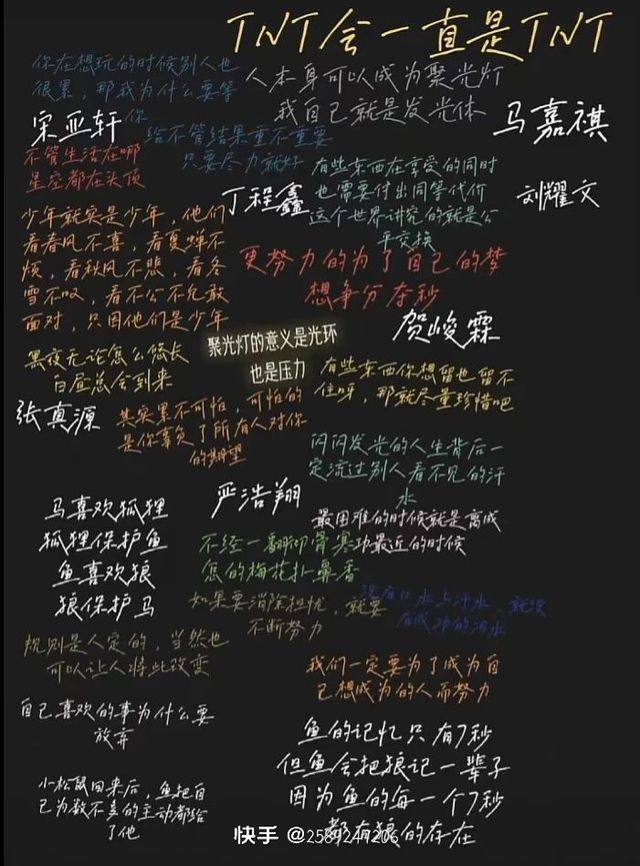 TNT会一直是TNT
你在想玩的时候别人也
很累，那我为什么要等
你
人本身可以成为聚光灯
我自己就是发光体
宋亚轩
马嘉祺
给不管结果重不重要
只要尽力就好
不管生活在哪
星空都在头顶
有些东西在享受的同时
也需要付出同等代价
这个世界讲究的就是公
平交换
丁程鑫
刘耀文
少年就实是少年，他们
看春风不喜，看夏蝉不
烦，看秋风不悲，看冬
雪不叹，看不公不允敢
面对，只因他们是少年
更努力的为了自己的梦
想争分夺秒
贺峻霖
聚光灯的意义是光环
也是压力
黑夜无论怎么悠长
白昼总会到来
有些东西你想留也留不
住呀，那就尽量珍惜吧
张真源
其实累不可怕，可怕的
是你辜负了所有人对你
的期望
闪闪发光的人生背后一
定流过别人看不见的汗
水
严浩翔
马喜欢狐狸
狐狸保护鱼
鱼喜欢狼
狼保护马
最困难的时候就是离成
功最近的时候
不经一翻彻骨寒
怎的梅花扑鼻香
如果要消除担忧，就要
不断努力
没有口水与汗水，就没
有成功的泪水
规则是人定的，当然也
可以让人将此改变
我们一定要为了成为自
己想成为的人而努力
自己喜欢的事为什么要
放弃
鱼的记忆只有7秒
但鱼会把狼记一辈子
因为鱼的每一个7秒
都有狼的存在
小松鼠回来后，鱼把自
己为数不多的主动都给
了他
快手 @2589247206